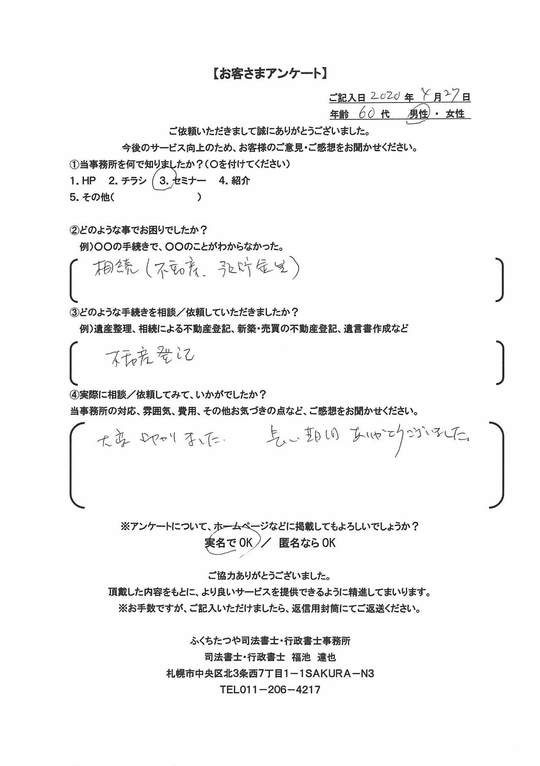 【お客さまアンケート】
ご記入日 2020 年 4 月 27 日
年齢 60 代 男性 ・ 女性
ご依頼いただきまして誠にありがとうございました。
今後のサービス向上のため、お客様のご意見・ご感想をお聞かせください。
①当事務所を何で知りましたか？(○を付けてください)
1. HP 2. チラシ 3. セミナー 4. 紹介
5. その他( )
②どのような事でお困りでしたか？
例)○○の手続きで、○○のことがわからなかった。
相続(不動産、預貯金)
③どのような手続きを相談／依頼していただきましたか？
例)遺産整理、相続による不動産登記、新築・売買の不動産登記、遺言書作成など
不動産登記
④実際に相談／依頼してみて、いかがでしたか？
当事務所の対応、雰囲気、費用、その他お気づきの点など、ご感想をお聞かせください。
大変 助かりました。 長い期間 ありがとうございました。
※アンケートについて、ホームページなどに掲載してもよろしいでしょうか？
実名で OK ／ 匿名なら OK
ご協力ありがとうございました。
頂戴した内容をもとに、より良いサービスを提供できるように精進してまいります。
※お手数ですが、ご記入いただけましたら、返信用封筒にてご返送ください。
ふくちたつや司法書士・行政書士事務所
司法書士・行政書士 福池 達也
札幌市中央区北3条西7丁目1－1SAKURA－N3
TEL011－206－4217